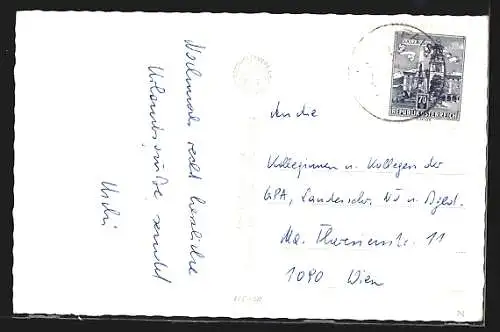 Nochmals recht herzliche
Urlaubsgrüße sendet
Uschi
An die
Kolleginnen u. Kollegen der
GPA, Landessekr. NÖ u. Bgld.
Ma. Theresienstr. 11
1090 Wien
70
REPUBLIK ÖSTERREICH